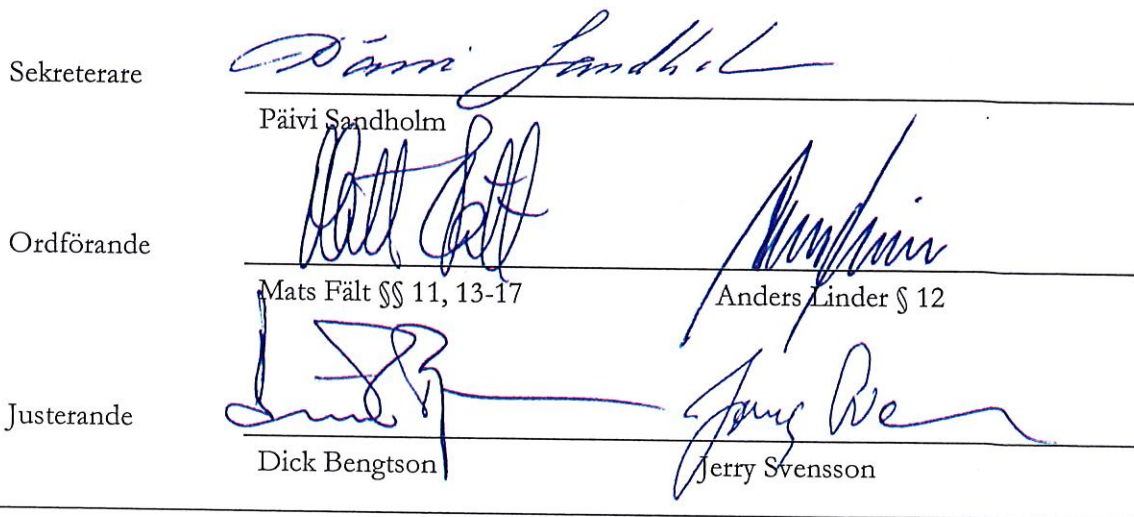 Sekreterare
Päivi Sandholm
Ordförande
Mats Fält §§ 11, 13-17 Anders Linder § 12
Justerande
Dick Bengtson Jerry Svensson